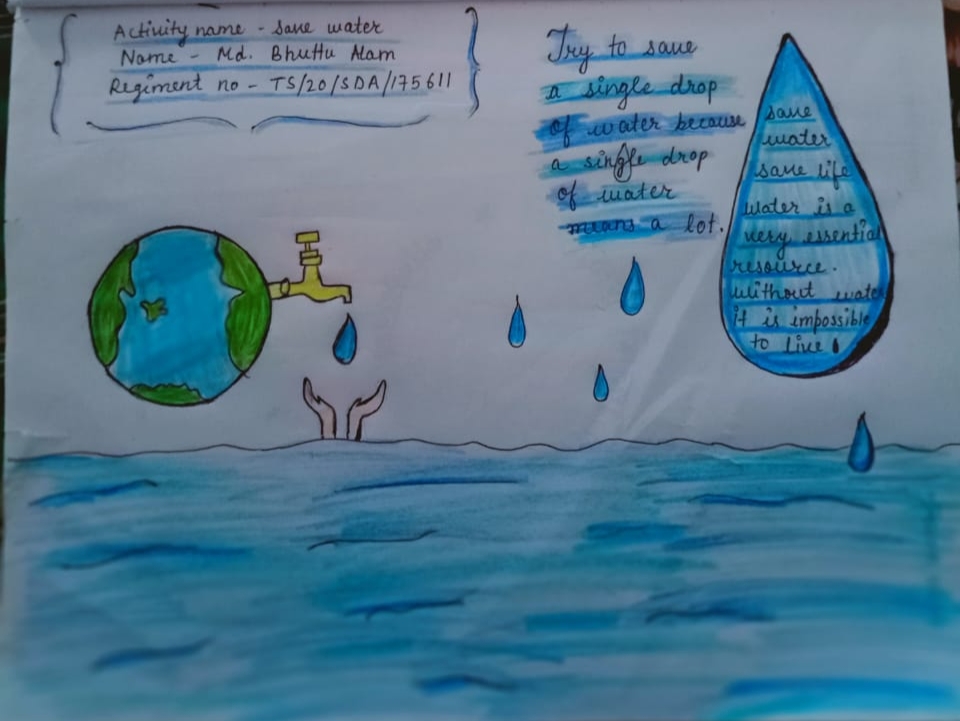 Activity name - save water
Name - Md. Bhuttu Alam
Regiment no - TS/20/SDA/175611
Try to save
a single drop
of water because
a single drop
of water
means a lot.
save
water
save life
water is a
very essential
resource.
Without water
it is impossible
to live